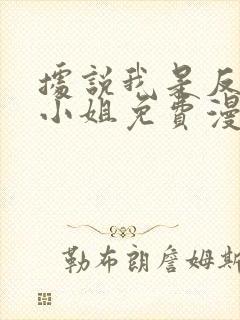 據說我是反
小姐免費漫
勒布朗詹姆斯